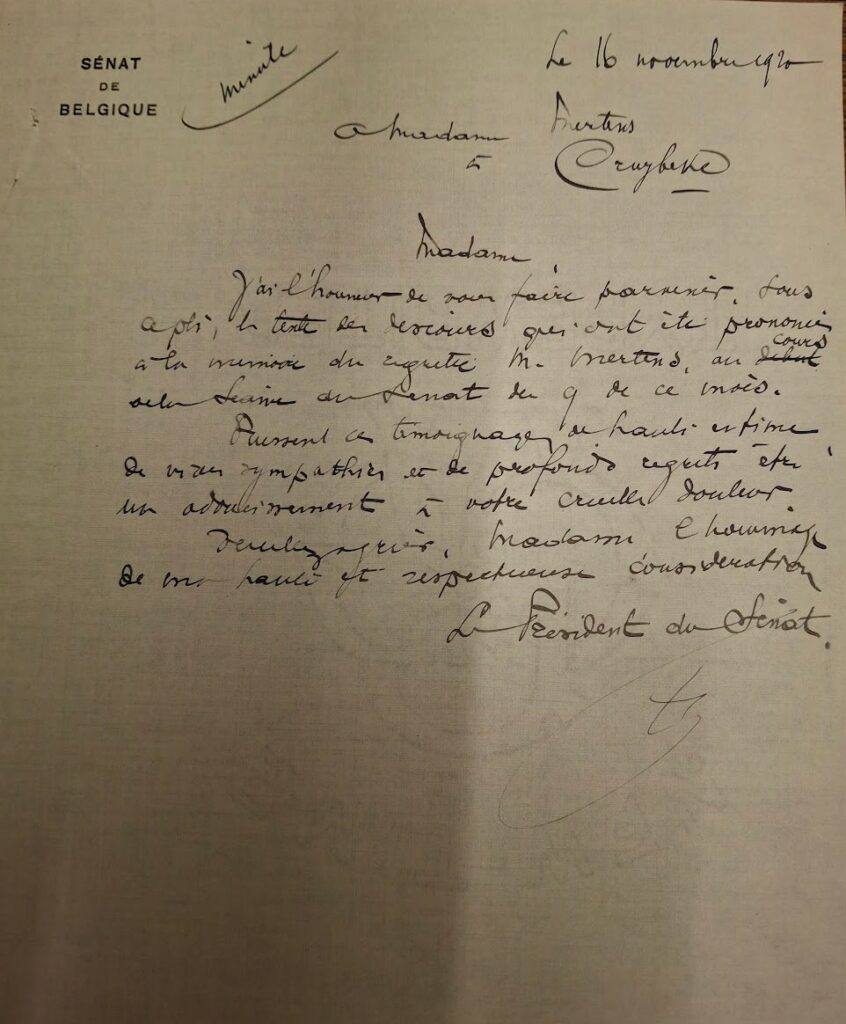 SÉNAT
DE
BELGIQUE
minute
Le 16 novembre 1920
A Madame Mertens
à Cruybeke
Madame
J'ai l'honneur de vous faire parvenir, sous
ce pli, le texte des discours qui ont été prononcés
à la mémoire du regretté M. Mertens, au début cours
de la Séance du Sénat du 9 de ce mois.
Puissent ces témoignages de haute estime
de vives sympathies et de profonds regrets être
un adoucissement à votre cruelle douleur.
Veuillez agréer, Madame l'hommage
de ma haute et respectueuse considération
Le Président du Sénat.